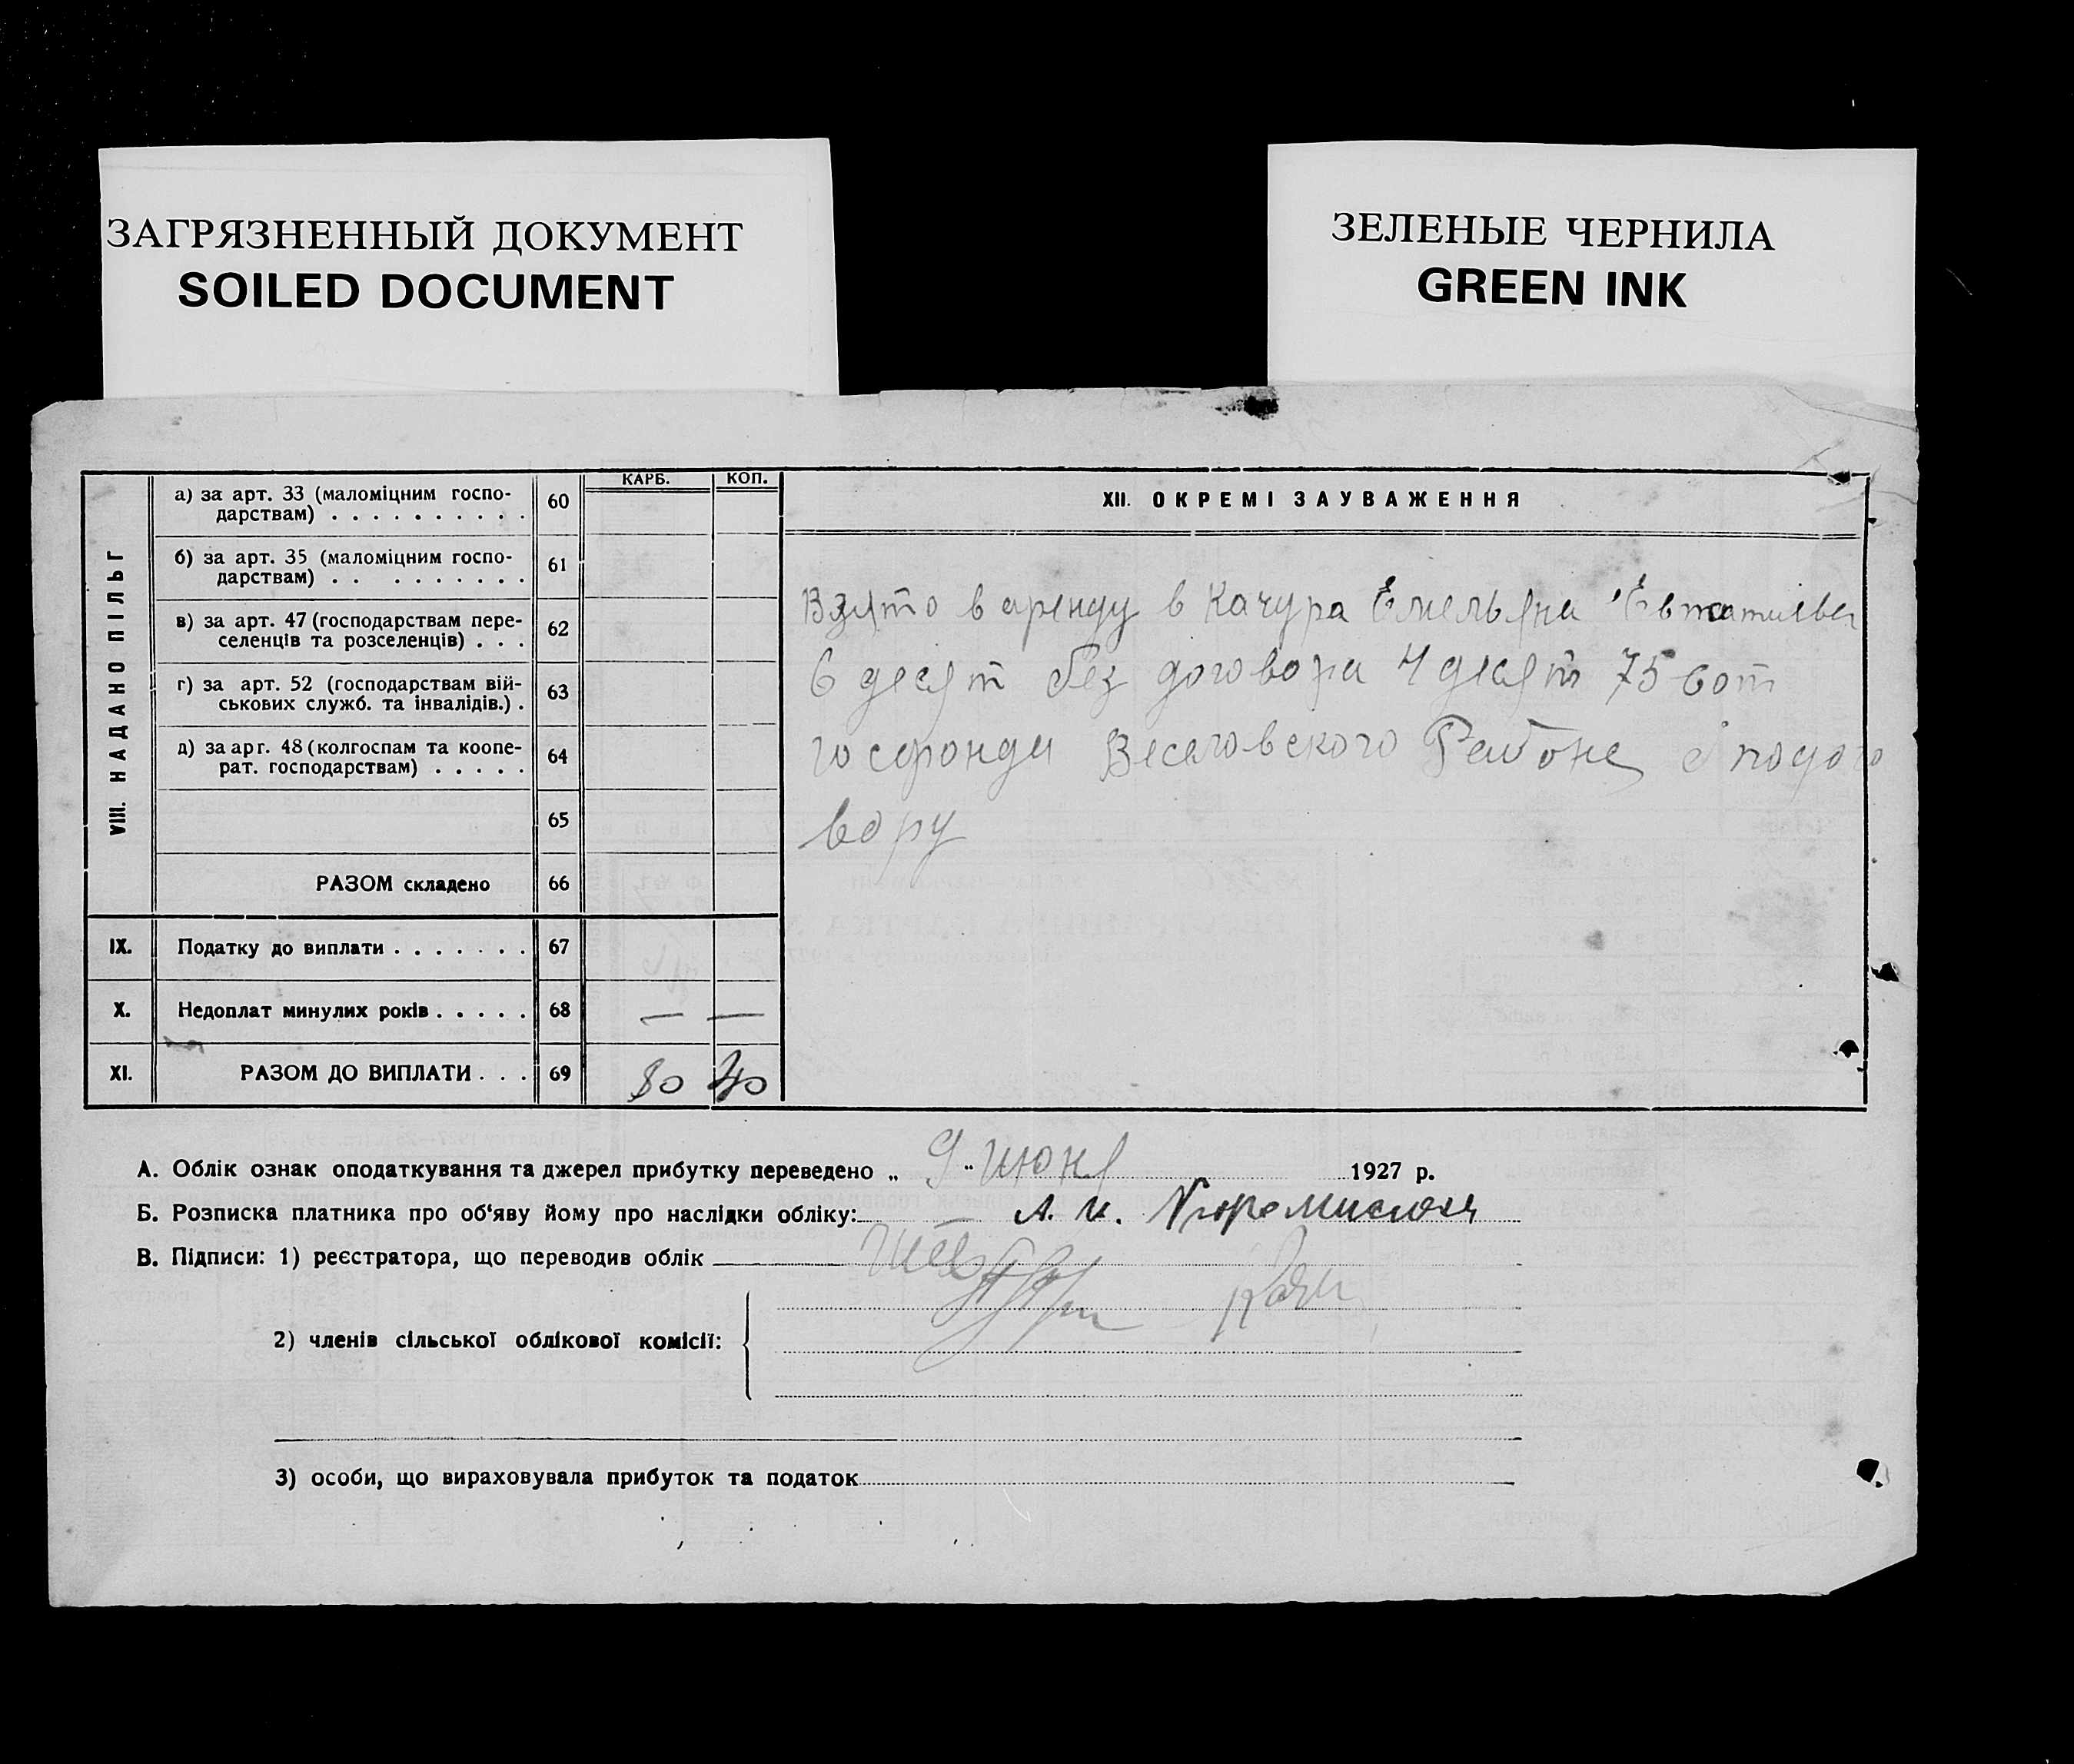 ЗАГРЯЗНЕННЫЙ ДОКУМЕНТ
SOILED DOCUMENT
ЗЕЛЕНЫЕ ЧЕРНИЛА
GREEN INK
VIII. НАДАНО ПІЛЬГ
КАРБ. КОП.
а) за арт. 33 (маломіцним госпо-
дарствам) . . . . . . . . . . 60
б) за арт. 35 (маломіцним госпо-
дарствам) . . . . . . . . . 61
в) за арт. 47 (господарствам пере-
селенців та розселенців) . . . 62
г) за арт. 52 (господарствам вій-
ськових служб. та інвалідів.) . 63
д) за арг. 48 (колгоспам та коопе-
рат. господарствам) . . . . . 64
65
РАЗОМ складено 66
IX. Податку до виплати . . . . . . . 67
X. Недоплат минулих років . . . . . 68 — —
XI. РАЗОМ ДО ВИПЛАТИ . . . 69 80 40
XII. ОКРЕМІ ЗАУВАЖЕННЯ
Взято в аренду в Качура Емельяна
6 десят без договора 4 десят 75 сот
госфонда Веселовского Района подого
вору
А. Облік ознак оподаткування та джерел прибутку переведено „ 9 " июня 1927 р.
Б. Розписка платника про об'яву йому про наслідки обліку: А. И.
В. Підписи: 1) реєстратора, що переводив облік
2) членів сільської облікової комісії:
3) особи, що вираховувала прибуток та податок